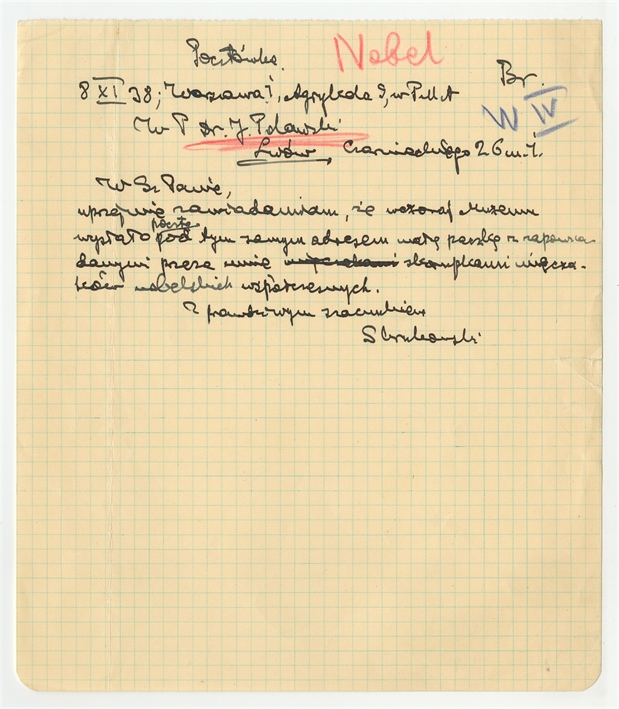 Pocztówka.
Nobel
Br.
W IV
8 XI 38, Warszawa 1, Agrykola 9, w P.M.A
W P Dr. J. Polański
Lwów, Czarnieckiego 26 m. 1.
W Sz Panie,
uprzejmie zawiadamiam, że wczoraj Muzeum
wysłało pocztą pod tym samym adresem małą paczkę z zapowia-
danymi przeze mnie skorupkami mięcza-
ków nobelskich współczesnych.
Z prawdziwym szacunkiem
S Krukowski